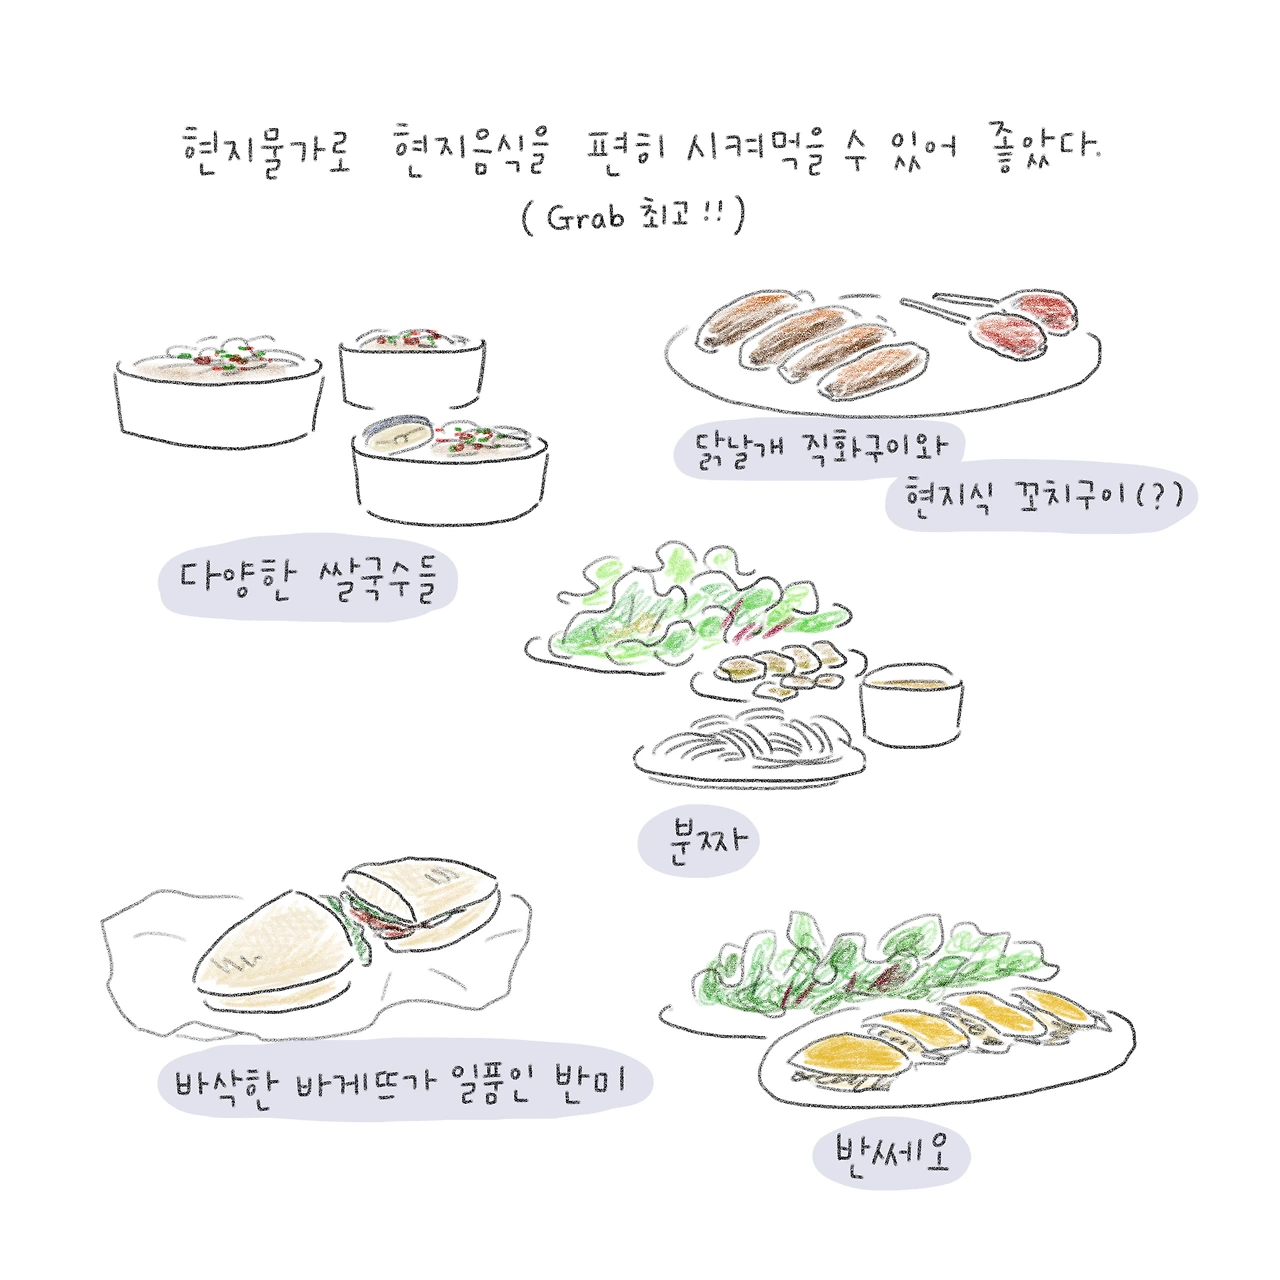 현지물가로 현지음식을 편히 시켜먹을 수 있어 좋았다.
(Grab 최고!!)
다양한 쌀국수들
닭날개 직화구이와
현지식 꼬치구이(?)
분짜
바삭한 바게뜨가 일품인 반미
반쎄오